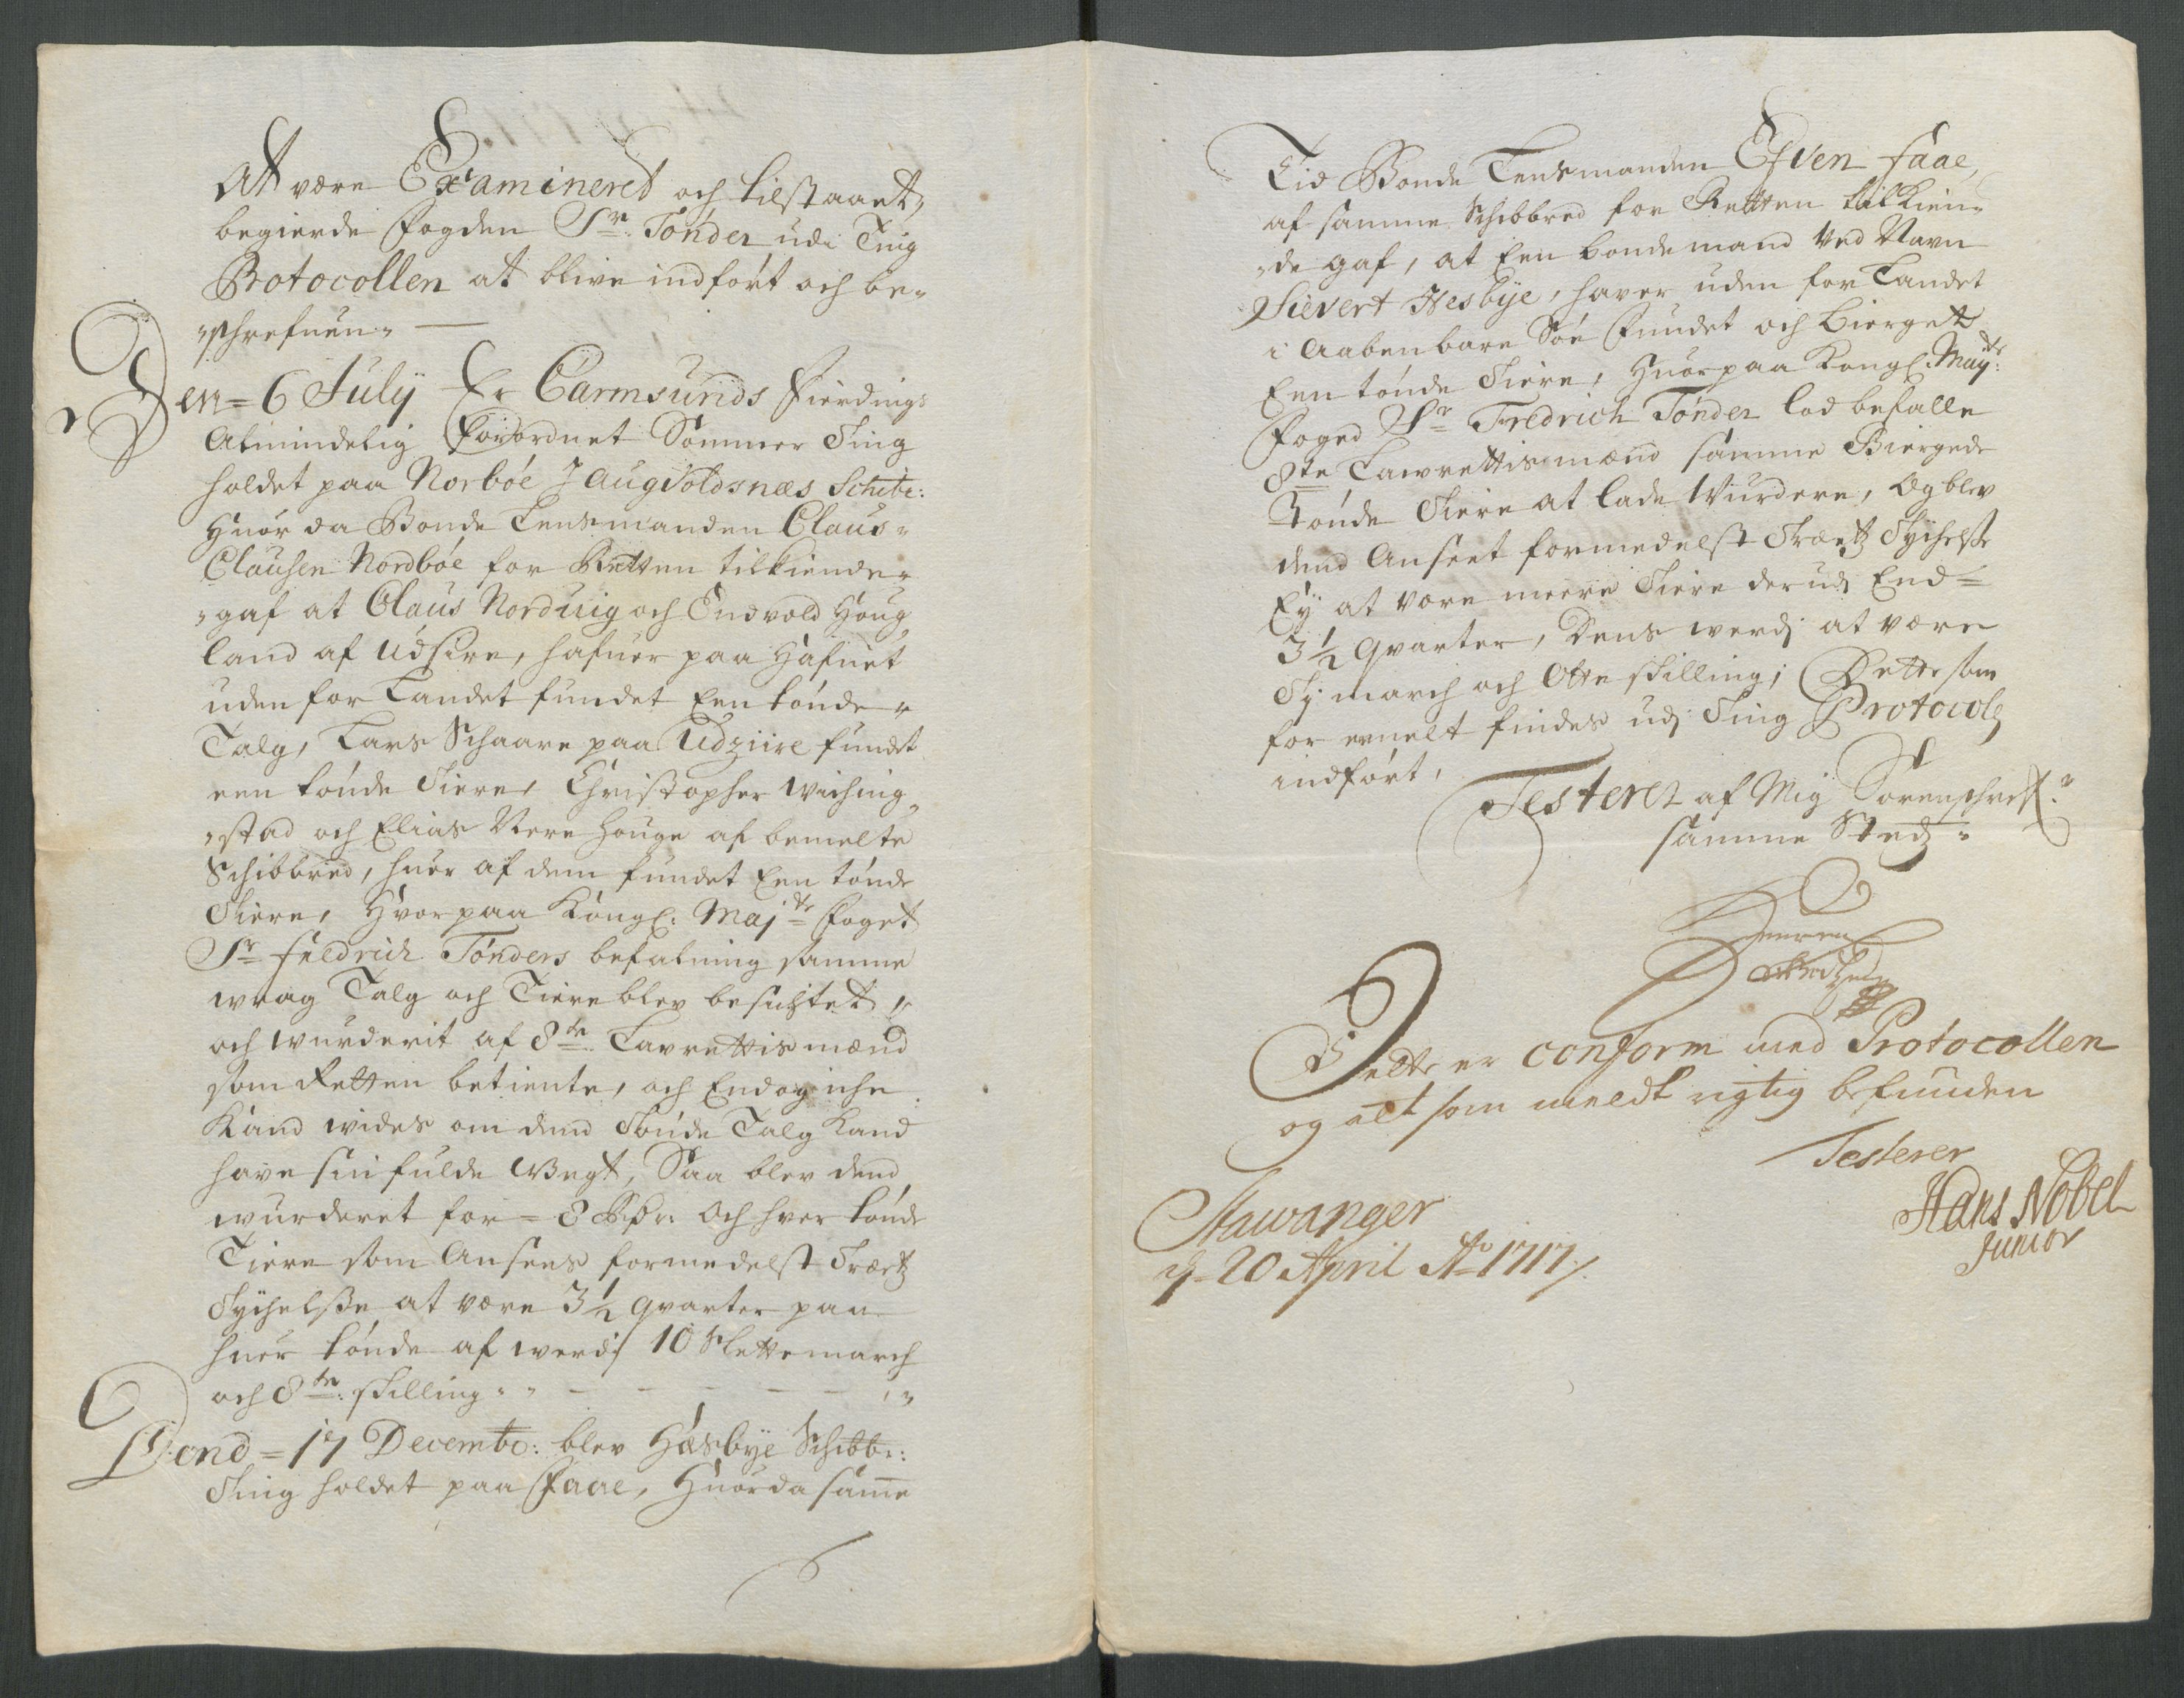 At være Examineret och tilstaaet,
begierde fogden Sr. Tønder udi Ting
Protocollen at blive indført och be-
"schrefuen"
Den = 6 July Er Carmsunds fierdings
Almindelig forordnet Sommer Ting
holdet paa Norbøe J Augvoldsnæs Schibr:
Huor da Bonde Lensmanden Claus
Clausen Nordbøe for Retten tilkiende-
"gaf at Claus Norduiig och Endvold Houg
land af Udsire, hafuer paa Hafuet
uden for Landet fundet Een tønde
Talg, Lars Schaare paa Udziire fundet
een tønde Tiere, Christopher Wiching
"stad och Elias Nere Houge af bemelte
Schibbred, huer af dem fundet Een tønde
Tiere, Hvorpaa Kongl: Maj.ts foget
Sr. Fredrich Tønders befalning samme
wrag Talg och Tiere blev besichtet,
och wurderit af 8te Lavrettismænd
som Retten betiente, och Endog iche
Kand wides om dend Tønde Talg kand
have sin fulde Wegt, Saa blev dend
wurderet for = 8 Rdr. Och hver tønde
Tiere som Ansees formedelst Træetz
Tychelsse at være 3½ qvarter paa
huer tønde af werdj 10 Slettemarch
och 8te: skilling
Dend = 17 Decembr: blev Hæsbye Schibbr:
Ting holdet paa Faae, Huor da same
Tid Bonde Lensmanden Efven Faae,
af samme Schibbred for Retten tilkien-
"de gaf, at Een bondemand Ved Navn
Sievert Hesbye, haver uden for Landet
i Aabenbare Søe fundet och bierget
Een tønde Tiere, Huorpaa Kongl. May:ts
foged Sr. Fredrich Tønder lod befalle
8te Lawrettismænd samme Biergede
Tønde Tiere at lade Wurdere, Og blev
dend Anseet formedelst Træetz Tychelsse
Ey at være meere Tiere derudj End =
3½ qvarter, Dens werdj at være
Ty march och Otte skilling; Dette som
for ermelt findes udj Ting Protocoln
indført,
Testerer af Mig Sorenschrif:
samme Sted
Dette er conform med Protocollen
og alt som meldt rigtig befunden
Testerer
Stawanger
d. 20 April Ao 1717.
Hans Nobel
Junior